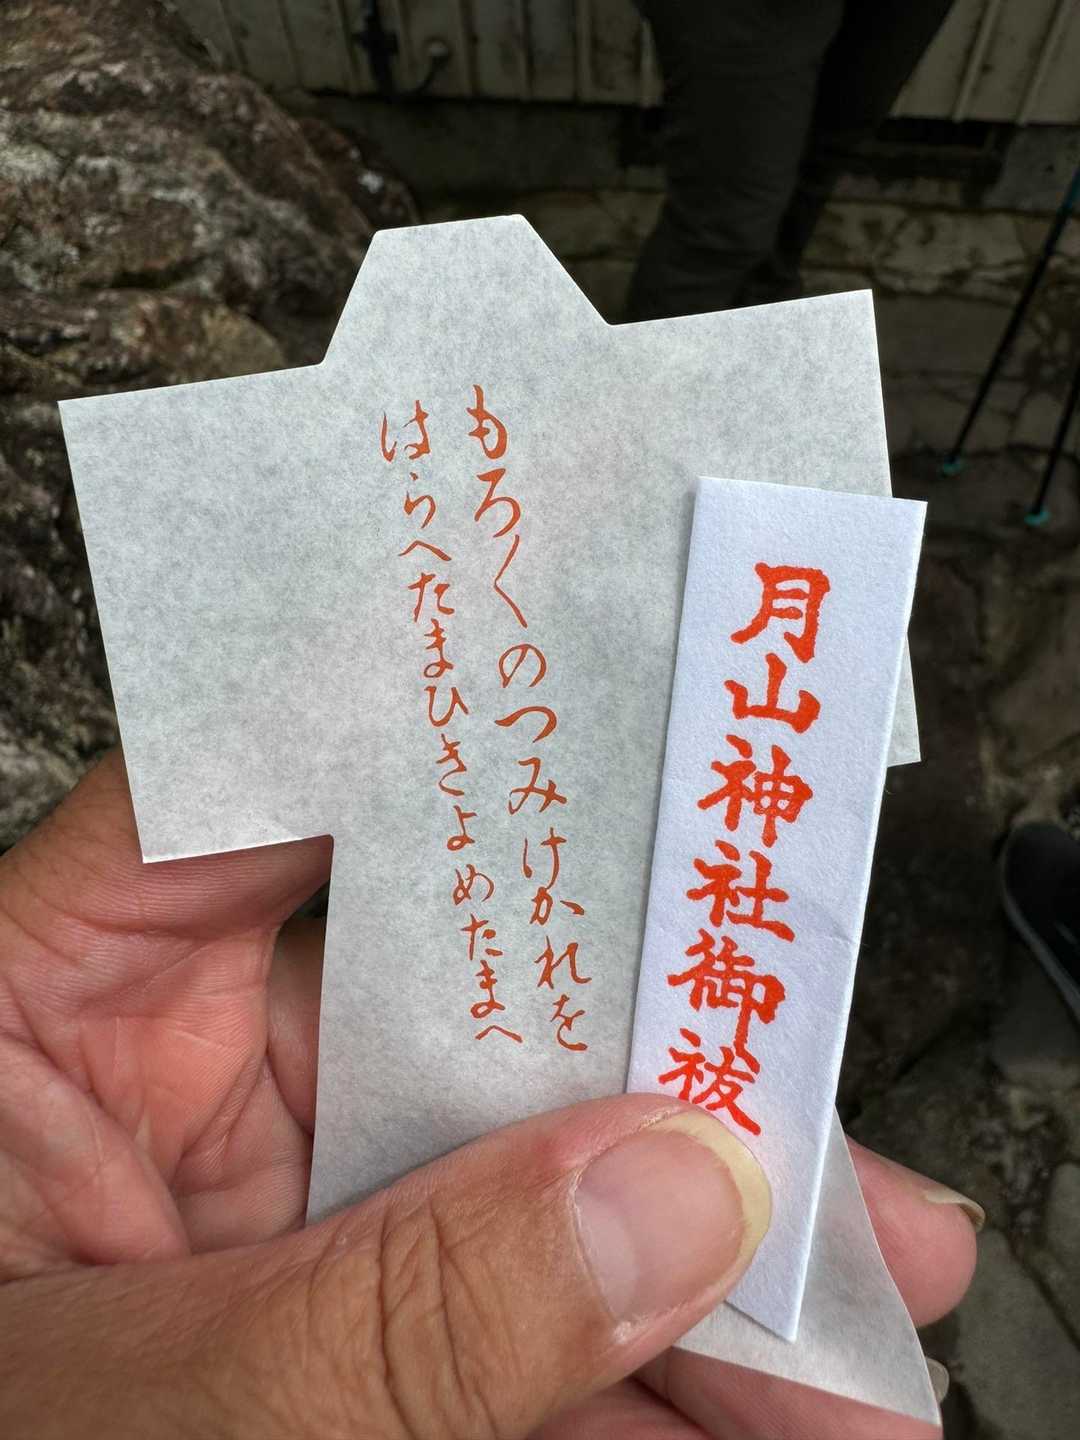 月山神社御祓
もろ〱のつみけかれを
はらへたまひきよめたまへ